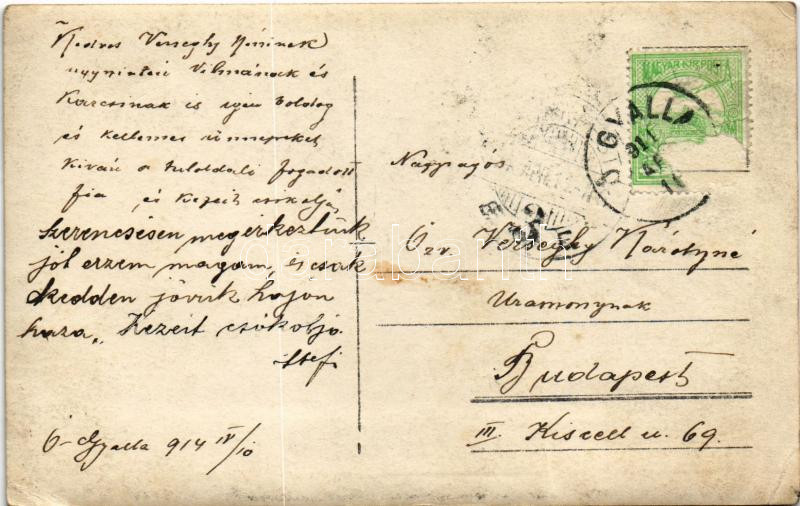 Kedves Verseghy Néninek
ugyszintén Vilmának és
Karcsinak is igen boldog
és kellemes ünnepeket
kiván a tuloldali fogadott
fia és kezeit csókolja
szerencsésen megérkeztünk
jól erzem magam, és csak
kedden jövünk hajon
haza. Kezeit csókolja
Stefi
Ó-Gyalla 914 IV/10
MAGYAR KIR. POSTA
ÓGYALLA
Nagyságos
Özv. Verseghy Károlyné
Uraszonynak
Budapest
III Kiscell u. 69.